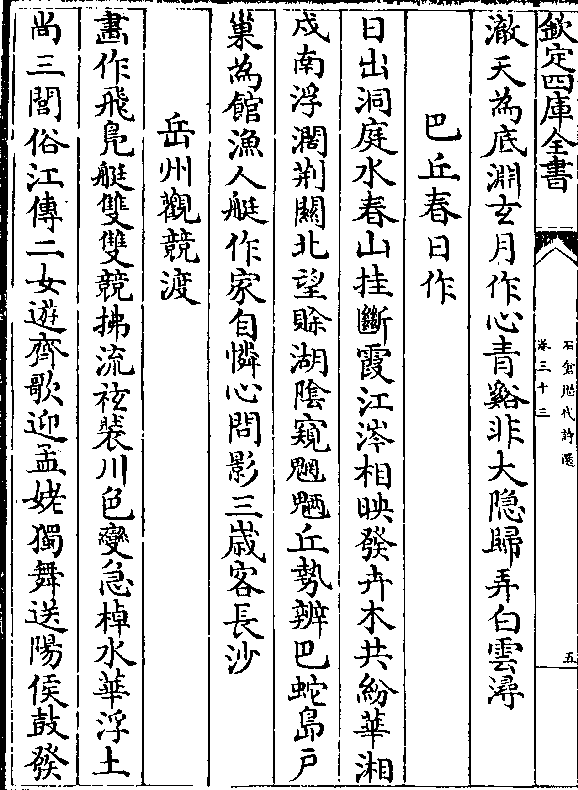 欽定四庫全書
石倉歷代詩選
卷三十三
五
澈天為底淵玄月作心青谿非大隐歸弄白雲潯
巴丘春日作
日出洞庭水春山挂斷霞江涔相映發卉木共紛華湘
戍南浮濶荆關北望賒湖陰窺魍魎丘勢辨巴蛇島戶
巢為館漁人艇作家自憐心問影三歲客長沙
岳州觀競渡
畫作飛鳬艇雙雙競拂流袨裝川色變急棹水華浮土
尚三閭俗江傳二女遊齊歌迎孟姥獨舞送陽侯鼓發